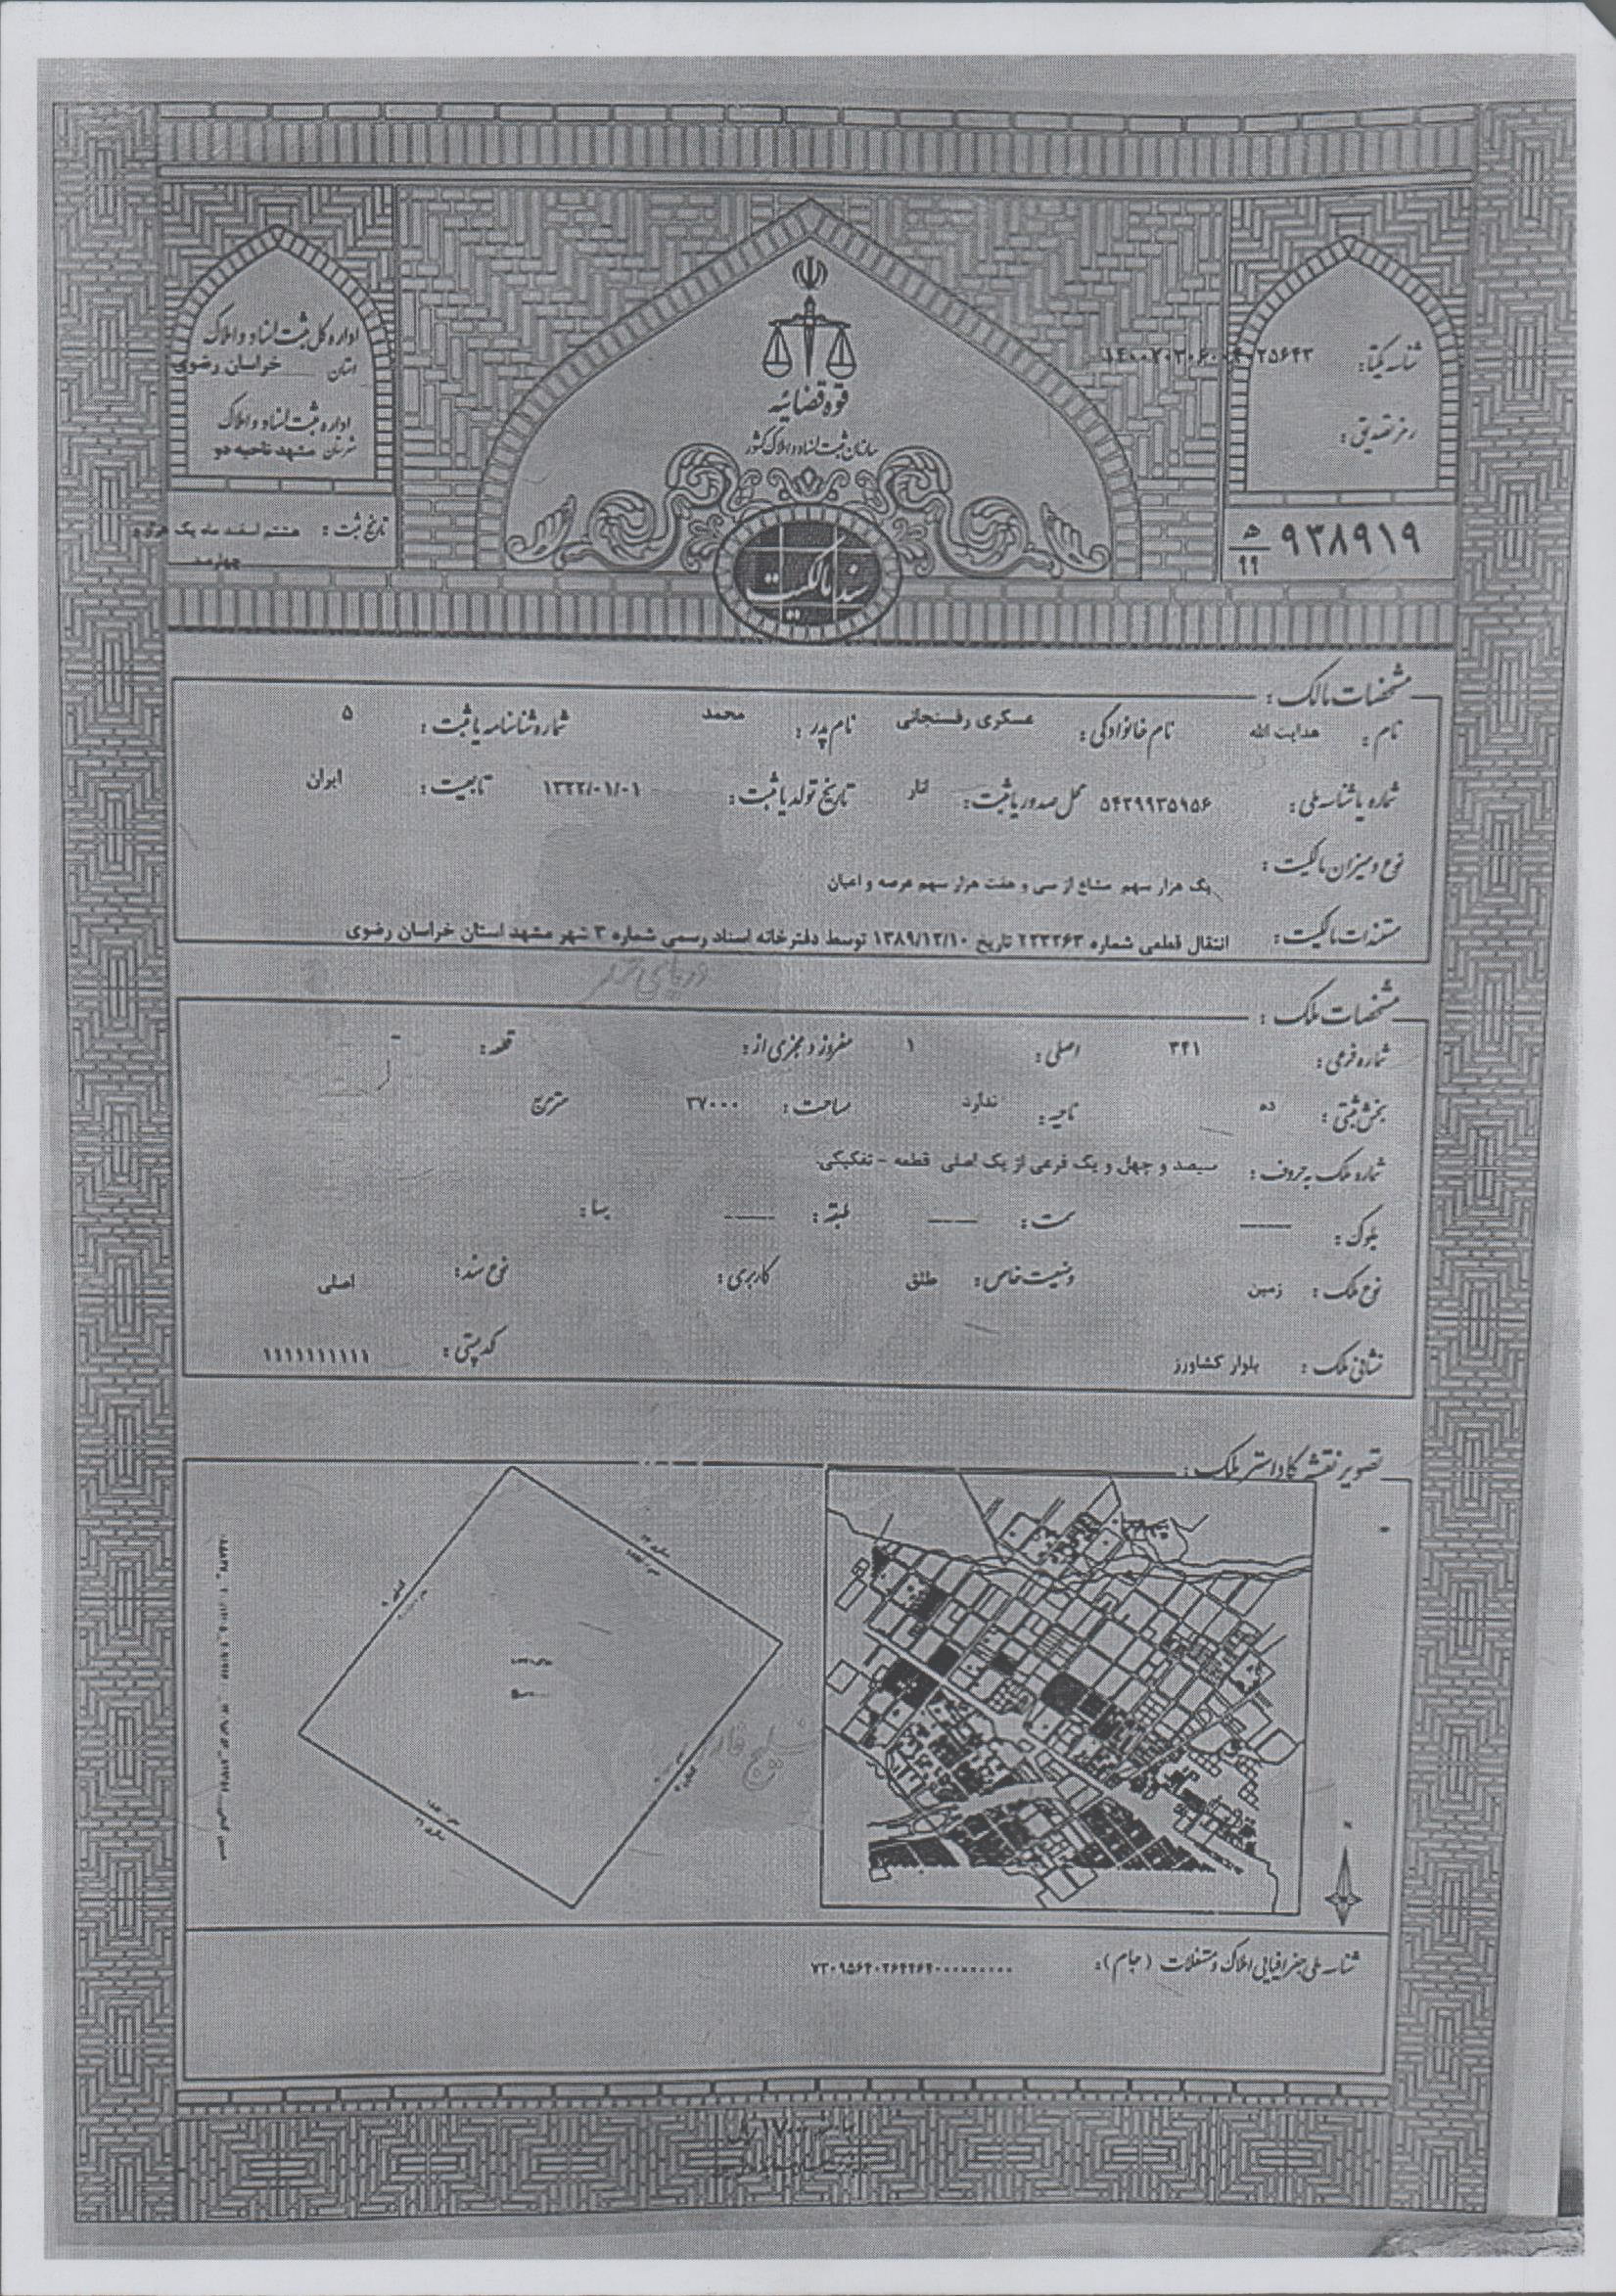 اداره کل ثبت اسناد و املاک
استان خراسان رضوی
اداره ثبت اسناد و املاک
شهرستان مشهد ناحیه دو
تاریخ ثبت : هشتم اسفند ماه یک هزار و
چهارصد
قوه قضائیه
سازمان ثبت اسناد و املاک کشور
سند مالکیت
شناسه یکتا:
رمز تصدیق :
۹۳۸۹۱۹ ه‍/۹۹
مشخصات مالک :
نام : هدایت الله نام خانوادگی : عسکری رفسنجانی نام پدر : محمد شماره شناسنامه یا ثبت : ۵
شماره یا شناسه ملی : ۵۴۲۹۹۳۵۹۵۶ محل صدور یا ثبت : انار تاریخ تولد یا ثبت : ۱۳۲۲/۰۱/۰۱ تابعیت : ایران
نوع و میزان مالکیت :
یک هزار سهم مشاع از سی و هفت هزار سهم عرصه و اعیان
مستندات مالکیت : انتقال قطعی شماره ۲۲۳۲۶۳ تاریخ ۱۳۸۹/۱۲/۱۰ توسط دفترخانه اسناد رسمی شماره ۳ شهر مشهد استان خراسان رضوی
مشخصات ملک :
شماره فرعی : ۳۴۱ اصلی : ۱ مفروز و مجزی از : قطعه : -
بخش ثبتی : ده ناحیه : ندارد مساحت : ۳۷۰۰۰ مترمربع
شماره ملک به حروف : سیصد و چهل و یک فرعی از یک اصلی قطعه - تفکیکی.
بلوک : ــــــ سمت : ــــــ طبقه : ــــــ بنا :
نوع ملک : زمین وضعیت خاص : طلق کاربری : نوع سند : اصلی
نشانی ملک : بلوار کشاورز کد پستی : ۱۱۱۱۱۱۱۱۱۱
تصویر نقشه کاداستر ملک :
خلیج فارس
شناسه ملی جغرافیایی املاک و مستغلات (جام):